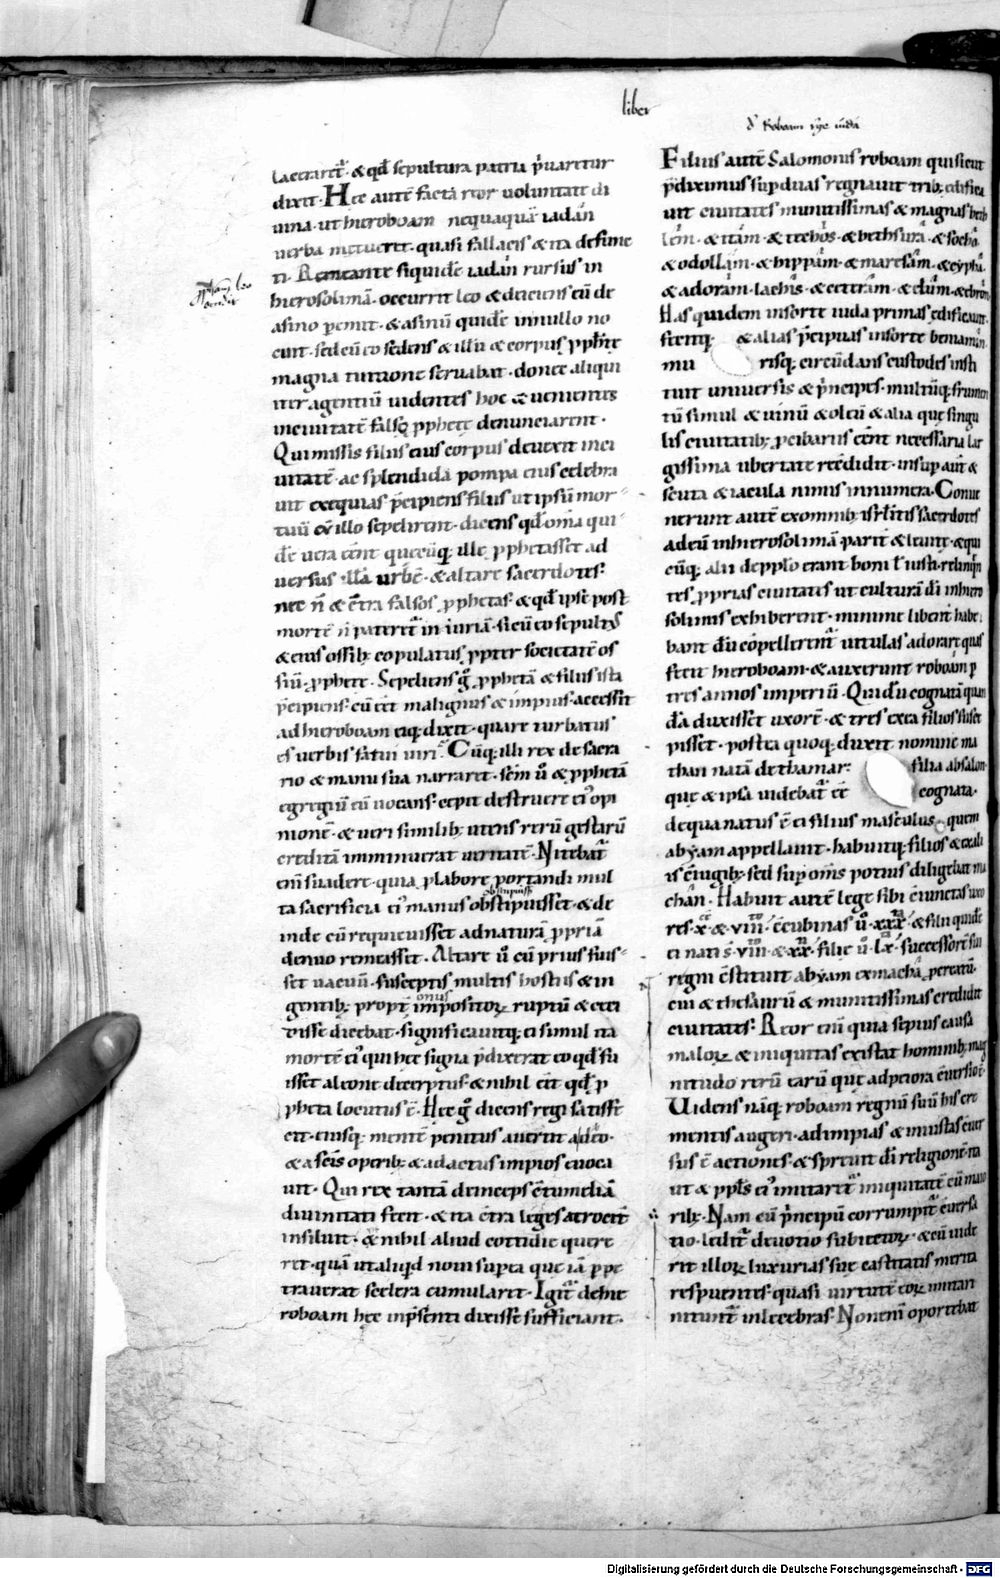 liber
laceraret᷑ · & qđ sepultura patru p̾uaretur
dixit · Hec autē facta reor voluntate di
uina · ut hieroboam nequaquā iadān
uerba metueret · quasi fallacis & ita defunc
ti · Rem̄eante siquidē iadān rursus in
hierosolimā · occurrit leo & deiciens eū de
asino ꝑemit · & asinū quidē in nullo no
cuit · sed eū eo sedens & illū & corpus ꝓph̄e
magna tuitione seruabat · donec aliqui
iter agentiū uidentes hoc & uenientes
in ciuitatē falso ꝓphete denunciarent ·
Qui missis filiis eius corpus deuexit in ci
uitatē · ac splendida pompa eius celebra
uit exequias p̄cipiens filiis ut ipsū mor
tuū cū illo sepelirent · dicens qđ om̄ia qui
dē uera eēnt quecūq; ille ꝓphetasset ad
uersus illā urbē · & altare sacerdotes ·
nec n̄ & c̄tra falsos ꝓphetas · & qđ ipse post
mortē n̄ pateret᷑ iniuriā · si cū eo sepultꝰ
& eius ossib; copulatus ꝓpter societatē os
siū ꝓphete · Sepeliens g̊ ꝓphetā & filiis ista
p̄cipiens · cū eēt malignus & impius · accessit
ad hieroboam eiq; dixit · quare turbatus
es uerbis fatui uiri · Cūq; illi rex de sacra
rio & manu sua narraret · sem̄ u̾o & ꝓphetā
egregiū eū uocans · cepit destruere eiꝰ opi
nionē · & ueri similib; utens rerū gestarū
creditā imminuerat ueritatē · Nitebat᷑
eni̅ suadere · quia ꝑ labore portandi mul
obstipuiss&
ta sacrificia eiꝰ manus obstipuisset · & de
inde cū requieuisset ad naturā ꝓpriā
denuo remeasset · Altare u̾o cū prius fuis
set uacuū · susceptis multis hostiis & in
onus
gentib; propt̾ impositorꝫ ruptū & ceci
disse dicebat · significauitq; ei simul ita
mortē eiꝰ qui hec signa p̄dixerat eo qđ fu
isset a leone deceptus · & nihil eēt qđ ꝓ
pheta locutus ē · Hec g̊ dicens regi satisfe
cit · eiusq; mentē penitus auertit a deo ·
& a sc̄is operib; & ad actus impios euoca
uit · Qui rex tantā deinceps c̄tumeliā
diuinitati fecit · & ita c̄tra leges atrociť
insiluit · & nihil aliud cottidie quere
ret · quā ut aliquid noui supra que iā ꝑpe
trauerat scelera cumularet · Igit᷑ de hie
roboam hec inp̄senti dixisse sufficiant ·
d̾ Roboam rege iuda
Filius autē Salomonis roboam qui sicut
p̄diximus sup duas regnauit trib; edifica
uit ciuitates munitissimas & magnas beth
lēm · & itām · & techōs · & bethsurā · & socho
& odollām · & hippām · & maresām · & cyphā
& adorām · lachis · & ecerām · & elūm · & ebron
Has quidem in sorte iuda primas edificauit
fecitq; & alias p̄cipuas in sorte beniamin
mu risq; circūdans custodes insti
tuit uniuersis & p̄ncipes · multūq; frumen
tū simul & uinū & oleū & alia que singu
lis ciuitatib; ꝑ cibariis eēnt necessaria lar
gissima ubertate recōdidit · insup aut̄ &
scuta & iacula nimis innumera · Conue
nerunt autē ex omnib; isrlitis sacerdotes
ad eū in hierosolimā parit̾ & leuite · & qui
cūq; alii de pplo erant boni ł iusti · relinqn
tes ꝓprias ciuitates ut culturā dī in hiero
solimis exhiberent · minime libent̾ habe
bant dū cōpellerent᷑ uitulas adorare quas
fecit hieroboam · & auxerunt roboam ꝑ
tres annos imperiū · Qui dū cognatā quan
dā duxisset uxorē · & tres ex ea filios susce
pisset · postea quoq; duxit nomine ma
chan natā de thamar · filia absalon
que & ipsa uidebat᷑ eē cognata ·
de qua natus ē ei filius masculus quem
abyam appellauit · habuitq; filios & ex ali
is c̄iugib; · sed sup om̄s potius diligebat ma
chān · Habuit autē lege sibi c̄iunctas uxo
res · x · & · viii · c̄cubinas u̾o · xxx · & filii quidē
ei nati s̄ · viii · & · xx · filie u̾o · lx · successorē sui
regni c̄stituit abyam ex machā ꝓcreatū ·
cui & thesaurū & munitissimas credidit
ciuitates · Reor eni̅ quia sepius causa
malorꝫ & iniquitas existat hominib; mag
nitudo rerū earū que ad peiora c̄uersio ē ·
Uidens nāq; roboam regnū suū his cre
mentis augeri · ad impias & iniustas c̄uer
sus ē actiones · & spreuit dī religionē · ita
ut & ppl̄s eiꝰ imitaret᷑ iniquitatē cū maio
rib; · Nam cū p̄ncipū corrumpit᷑ c̄uersa
tio · ledit᷑ deuotio subiectorꝫ · & cū uide
rit illorꝫ luxurias siue castitatis merita
respuentes · quasi uirtutē eorꝫ imitari
nitunt᷑ inlecebras · Non eni̅ oportebat
Digitalisierung gefördert durch die Deutsche Forschungsgemeinschaft - DFG